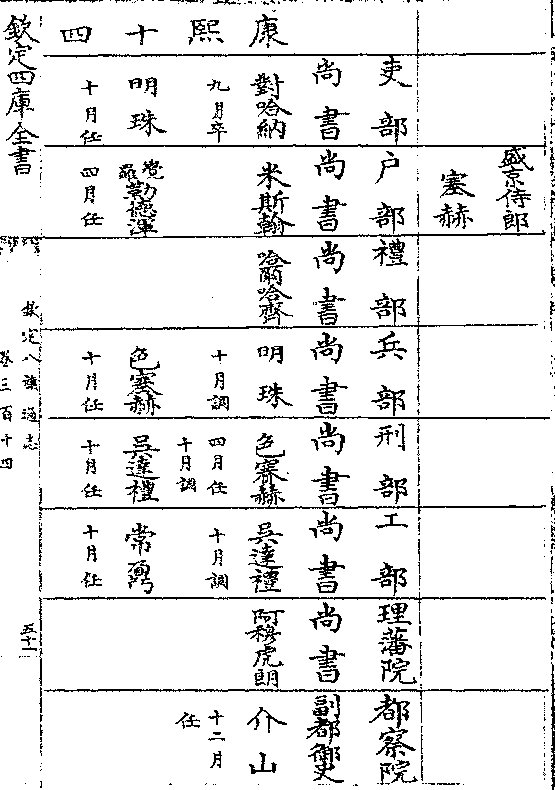 盛京侍郎
塞赫
康熙十四
吏部
尚書
對哈納
九月卒
明珠
十月任
户部
尚書
米斯翰
覺羅勒德渾
四月任
禮部
尚書
哈爾哈齊
兵部
尚書
明珠
十月調
色塞赫
十月任
刑部
尚書
色塞赫
四月任
十月調
吳達禮
十月任
工部
尚書
吳達禮
十月調
常鼐
十月任
理藩院
尚書
阿穆虎朗
都察院
副都御史
介山
十二月
任
欽定四庫全書
欽定八旗通志
卷三百十四
五十一